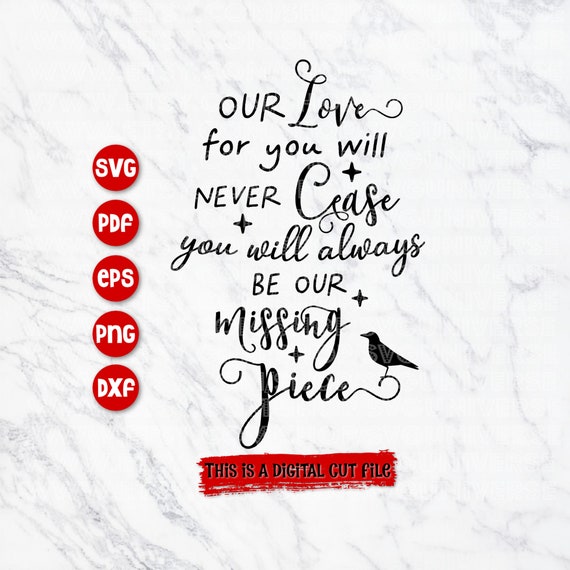 OUR Love
for you will
NEVER Cease
you will always
BE OUR
missing
piece
SVG
PDF
EPS
PNG
DXF
THIS IS A DIGITAL CUT FILE